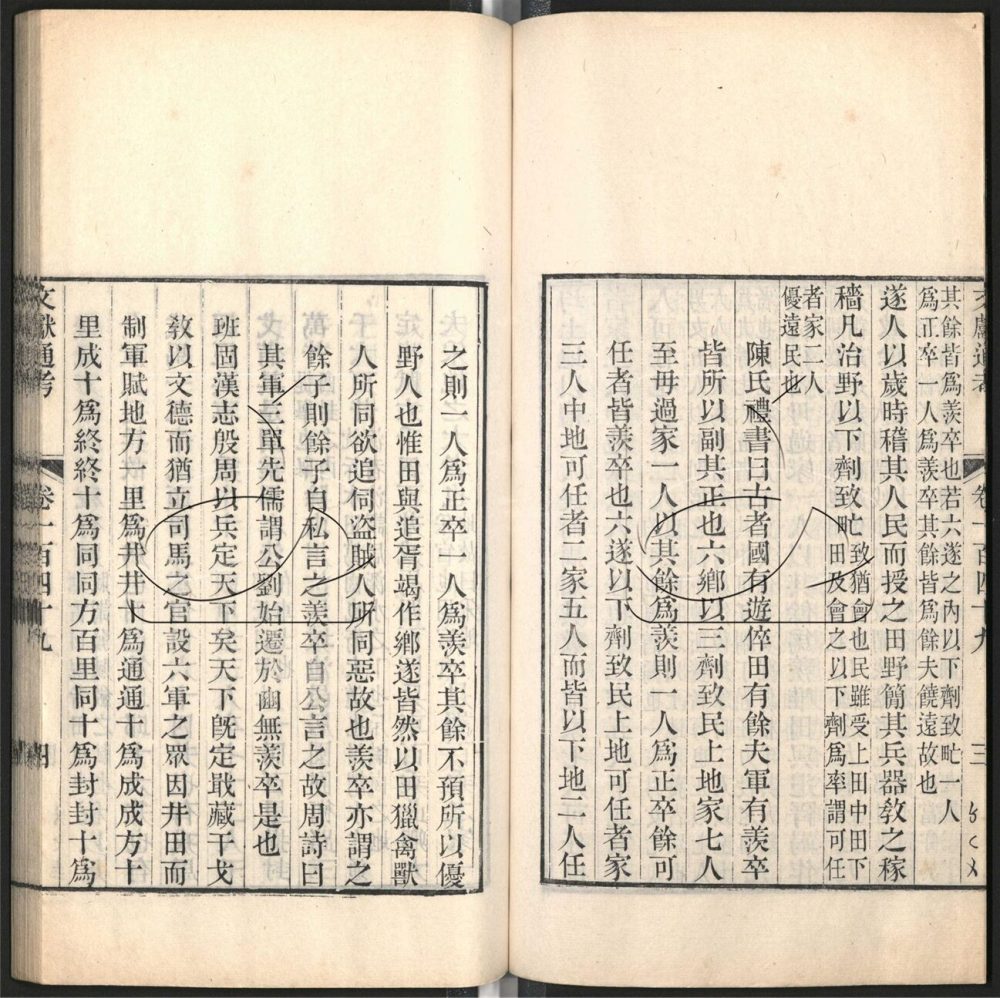 文獻通考 卷一百四十九 三
其餘皆爲羨卒也若六遂之內以下劑致甿一人
爲正卒一人爲羨卒其餘皆爲餘夫饒遠故也
遂人以歲時稽其人民而授之田野簡其兵器敎之稼
穡凡治野以下劑致甿
致猶會也民雖受上田中田下
田及會之以下劑爲率謂可任
者家二人
優遠民也
陳氏禮書曰古者國有遊倅田有餘夫軍有羨卒
皆所以副其正也六鄉以三劑致民上地家七人
至毋過家一人以其餘爲羨則一人爲正卒餘可
任者皆羨卒也六遂以下劑致民上地可任者家
三人中地可任者二家五人而皆以下地二人任
之則一人爲正卒一人爲羨卒其餘不預所以優
野人也惟田與追胥竭作鄉遂皆然以田獵禽獸
人所同欲追伺盜賊人所同惡故也羨卒亦謂之
餘子則餘子自私言之羨卒自公言之故周詩曰
其軍三單先儒謂公劉始遷於豳無羨卒是也
班固漢志殷周以兵定天下矣天下旣定戢藏干戈
敎以文德而猶立司馬之官設六軍之眾因井田而
制軍賦地方一里爲井井十爲通通十爲成成方十
里成十爲終終十爲同同方百里同十爲封封十爲
文獻通考 卷一百四十九 四